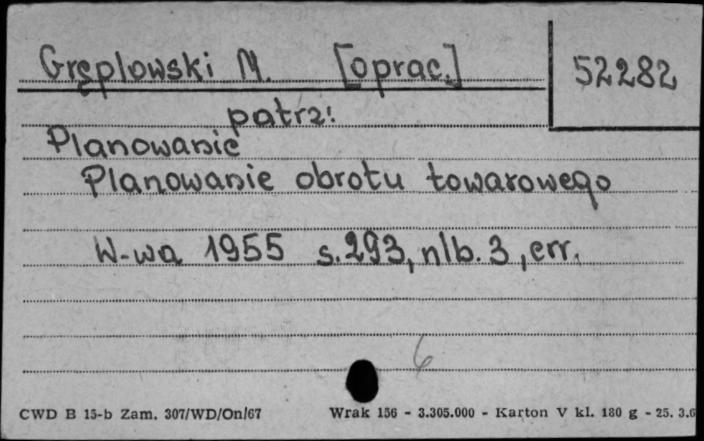 Gręplowski M. [oprac.] 52282
patrz:
Planowanie
Planowanie obrotu towarowego
W-wa 1955 s. 293, nlb. 3, err.
6
CWD B 15-b Zam. 307/WD/On/67 Wrak 156 - 3.305.000 - Karton V kl. 180 g - 25. 3.6